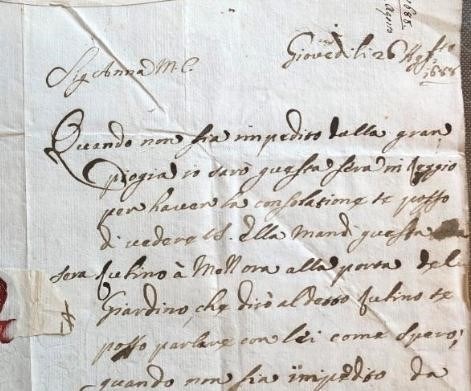 1688
Agosto
Giovedì li 26 Agosto
1688
Sig Anna M. C.
Quando non sia impedito dalla gran
pogia io sarò questa sera in
per haver la consolatione se posso
di vedere VS. Ella Mandi questa
sera sulino à Mell'ora alla porta del
Giardino, che dirò al desso sulino se
posso parlare con lei come spero,
quando non sia impedito da